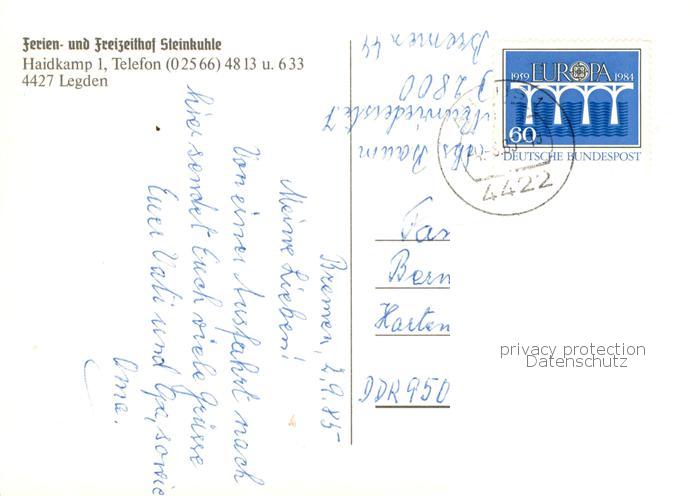 Ferien- und Freizeithof Steinkuhle
Haidkamp 1, Telefon (0 25 66) 48 13 u. 6 33
4427 Legden
Bremen, 2.9.85
Meine Lieben!
Von einer Ausfahrt nach
hier sendet Euch viele Grüsse
Euer Vati und Ilse, sowie
Oma.
Baum
D 2800
Bremen 44
EUROPA
1959 1984
60
DEUTSCHE BUNDESPOST
4422
Fa
Bern
Harten
DDR 950
privacy protection
Datenschutz